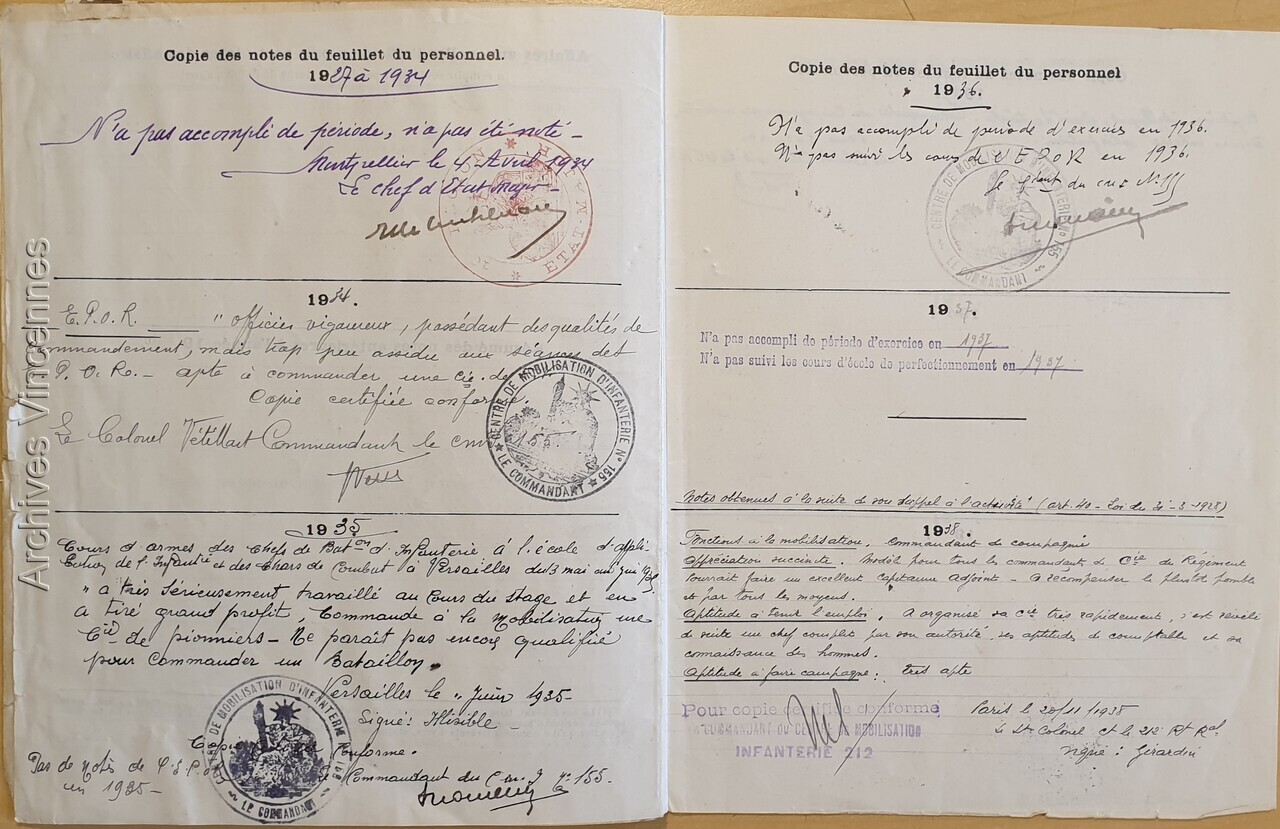 Archives Vincennes
Copie des notes du feuillet du personnel.
1927 à 1934
N'a pas accompli de période, n'a pas été noté -
Montpellier le 4 Avril 1934
Le chef d'Etat Major -
ETAT MAJOR
1934.
E.P.O.R. " officier vigoureux, possédant des qualités de
commandement, mais trop peu assidu aux séances des
P.O.R. - apte à commander une Cie. de
Copie certifiée conforme.
Le Colonel Vétillart Commandant le cm
CENTRE DE MOBILISATION D'INFANTERIE N° 155
LE COMMANDANT
1935
Cours d'armes des Chefs de Baton d'Infanterie à l'école d'appli-
cation de l'Infantie et des Chars de Combat à Versailles du 3 mai au juin 1935
" a très sérieusement travaillé au Cours du stage et en
a tiré grand profit, Commande à la Mobilisation une
Cie de pionniers - Ne paraît pas encore qualifié
pour commander un Bataillon.
Versailles le " Juin 1935
Signé: Illisible
Copie Conforme.
Commandant du C.m.I N° 155.
Pas de notes de
en 1935 -
CENTRE DE MOBILISATION D'INFANTERIE N° 155
LE COMMANDANT
Copie des notes du feuillet du personnel
1936.
N'a pas accompli de période d'exercice en 1936.
N'a pas suivi les cours de l'EPOR en 1936.
CENTRE DE MOBILISATION D'INFANTERIE N° 155
LE COMMANDANT
1937.
N'a pas accompli de période d'exercice en 1937
N'a pas suivi les cours d'école de perfectionnement en 1937
Notes obtenues à la suite de son rappel à l'activité (art. 40 - Loi du 31-3-1928)
1938.
Fonctions à la mobilisation. Commandant de compagnie
Appréciation succincte. Modèl pour tous les commandants de Cie du Régiment
Pourrait faire un excellent Capitaine adjoint - A récompenser le plus tôt possible
et par tous les moyens.
Aptitude à tenir l'emploi. A organisé sa Cie très rapidement, s'est révélé
de suite un chef complet par son autorité, ses aptitudes de comptable et sa
connaissance des hommes.
Aptitude à faire campagne: très apte
Pour copie certifiée conforme
LE COMMANDANT DU CENTRE DE MOBILISATION
INFANTERIE 212
Paris le 20/11/1938
le Lt Colonel Ct le 212 Rt Ral
signé: Girardin